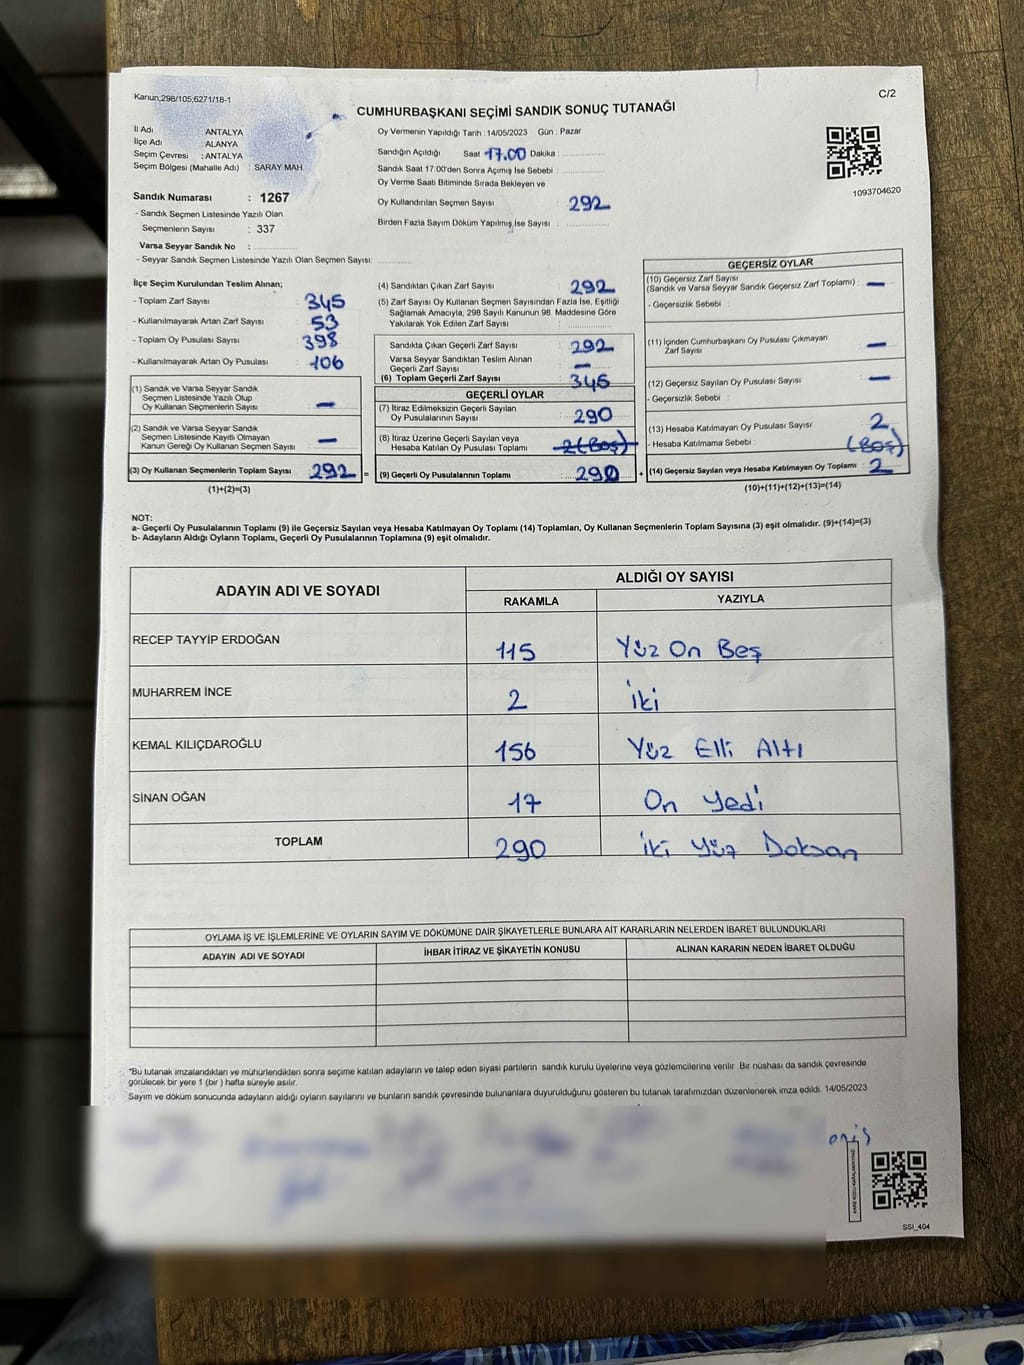 Kanun;298/105;6271/18-1
C/2
CUMHURBAŞKANI SEÇİMİ SANDIK SONUÇ TUTANAĞI
İl Adı ANTALYA
İlçe Adı : ALANYA
Seçim Çevresi : ANTALYA
Seçim Bölgesi (Mahalle Adı) : SARAY MAH.
Sandık Numarası : 1267
- Sandık Seçmen Listesinde Yazılı Olan
Seçmenlerin Sayısı : 337
Varsa Seyyar Sandık No :
- Seyyar Sandık Seçmen Listesinde Yazılı Olan Seçmen Sayısı:
Oy Vermenin Yapıldığı Tarih : 14/05/2023 Gün : Pazar
Sandığın Açıldığı Saat 17.00 Dakika :
Sandık Saat 17:00'den Sonra Açımış İse Sebebi :
Oy Verme Saati Bitiminde Sırada Bekleyen ve
Oy Kullandırılan Seçmen Sayısı : 292
Birden Fazla Sayım Döküm Yapılmış İse Sayısı :
1093704620
İlçe Seçim Kurulundan Teslim Alınan;
- Toplam Zarf Sayısı : 345
- Kullanılmayarak Artan Zarf Sayısı : 53
- Toplam Oy Pusulası Sayısı : 398
- Kullanılmayarak Artan Oy Pusulası : 106
(1) Sandık ve Varsa Seyyar Sandık
Seçmen Listesinde Yazılı Olup
Oy Kullanan Seçmenlerin Sayısı : –
(2) Sandık ve Varsa Seyyar Sandık
Seçmen Listesinde Kayıtlı Olmayan
Kanun Gereği Oy Kullanan Seçmen Sayısı : –
(3) Oy Kullanan Seçmenlerin Toplam Sayısı : 292 =
(1)+(2)=(3)
(4) Sandıktan Çıkan Zarf Sayısı : 292
(5) Zarf Sayısı Oy Kullanan Seçmen Sayısından Fazla İse, Eşitliği
Sağlamak Amacıyla, 298 Sayılı Kanunun 98. Maddesine Göre
Yakılarak Yok Edilen Zarf Sayısı :
Sandıkta Çıkan Geçerli Zarf Sayısı : 292
Varsa Seyyar Sandıktan Teslim Alınan
Geçerli Zarf Sayısı : –
(6) Toplam Geçerli Zarf Sayısı : 345
GEÇERLİ OYLAR
(7) İtiraz Edilmeksizin Geçerli Sayılan
Oy Pusulalarının Sayısı : 290
(8) İtiraz Üzerine Geçerli Sayılan veya
Hesaba Katılan Oy Pusulası Toplamı : 2 (Boş)
(9) Geçerli Oy Pusulalarının Toplamı : 290 +
GEÇERSİZ OYLAR
(10) Geçersiz Zarf Sayısı
(Sandık ve Varsa Seyyar Sandık Geçersiz Zarf Toplamı) : –
- Geçersizlik Sebebi :
(11) İçinden Cumhurbaşkanı Oy Pusulası Çıkmayan
Zarf Sayısı : –
(12) Geçersiz Sayılan Oy Pusulası Sayısı : –
- Geçersizlik Sebebi :
(13) Hesaba Katılmayan Oy Pusulası Sayısı : 2
- Hesaba Katılmama Sebebi : (Boş)
(14) Geçersiz Sayılan veya Hesaba Katılmayan Oy Toplamı : 2
(10)+(11)+(12)+(13)=(14)
NOT:
a- Geçerli Oy Pusulalarının Toplamı (9) ile Geçersiz Sayılan veya Hesaba Katılmayan Oy Toplamı (14) Toplamları, Oy Kullanan Seçmenlerin Toplam Sayısına (3) eşit olmalıdır. (9)+(14)=(3)
b- Adayların Aldığı Oyların Toplamı, Geçerli Oy Pusulalarının Toplamına (9) eşit olmalıdır.
ADAYIN ADI VE SOYADI ALDIĞI OY SAYISI
RAKAMLA YAZIYLA
RECEP TAYYİP ERDOĞAN 115 Yüz On Beş
MUHARREM İNCE 2 İki
KEMAL KILIÇDAROĞLU 156 Yüz Elli Altı
SİNAN OĞAN 17 On Yedi
TOPLAM 290 İki Yüz Doksan
OYLAMA İŞ VE İŞLEMLERİNE VE OYLARIN SAYIM VE DÖKÜMÜNE DAİR ŞİKAYETLERLE BUNLARA AİT KARARLARIN NELERDEN İBARET BULUNDUKLARI
ADAYIN ADI VE SOYADI İHBAR İTİRAZ VE ŞİKAYETİN KONUSU ALINAN KARARIN NEDEN İBARET OLDUĞU
*Bu tutanak imzalandıktan ve mühürlendikten sonra seçime katılan adayların ve talep eden siyasi partilerin sandık kurulu üyelerine veya gözlemcilerine verilir. Bir nüshası da sandık çevresinde
görülecek bir yere 1 (bir) hafta süreyle asılır.
Sayım ve döküm sonucunda adayların aldığı oyların sayılarını ve bunların sandık çevresinde bulunanlara duyurulduğunu gösteren bu tutanak tarafımızdan düzenlenerek imza edildi. 14/05/2023
KARE KODU KARALAMAYINIZ
SSI_404